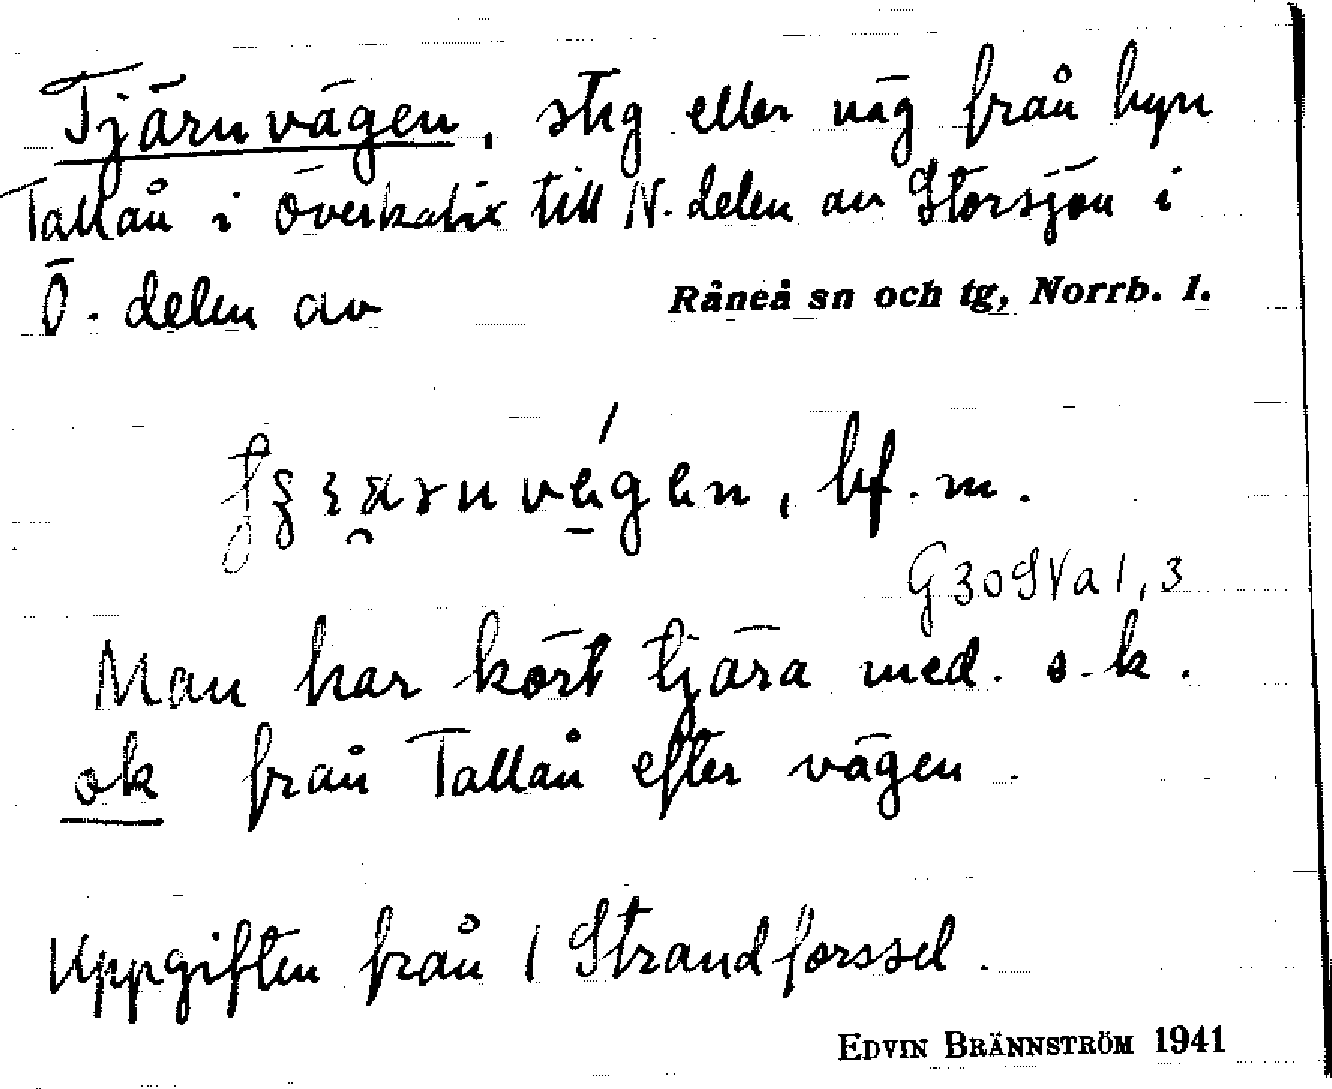 Tjärnvägen, stig eller väg från byn
Tallån i Överkalix till N. delen av Storsjön i
Ö. delen av Råneå sn och tg, Norrb. l.
bf. m.
Man har kört tjära med. s.k.
ok från Tallån efter vägen
Uppgiften från 1 Strandforssel.
EDVIN BRÄNNSTRÖM 1941